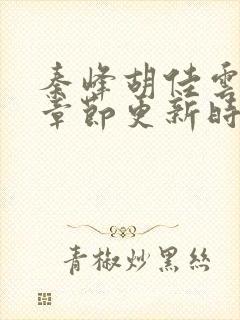 秦峰胡佳雲
章節更新時
青椒炒黑絲